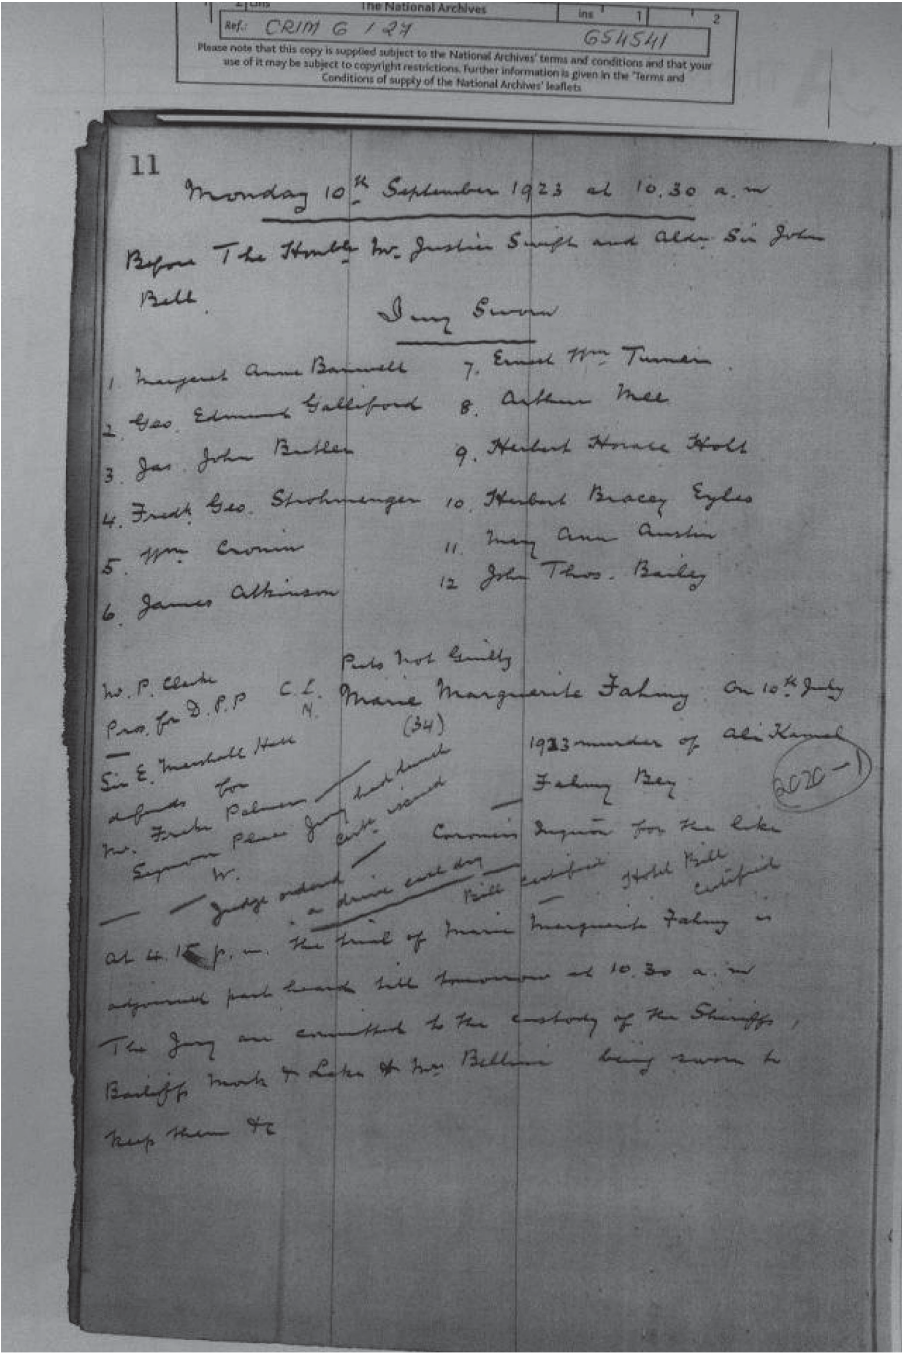 The National Archives
ins 1 2
Ref.: CRIM 6 / 27 654541
Please note that this copy is supplied subject to the National Archives' terms and conditions and that your
use of it may be subject to copyright restrictions. Further information is given in the 'Terms and
Conditions of supply of the National Archives' leaflets
11
Monday 10th September 1923 at 10.30 a.m
Before The Honble Mr. Justice Swift and Aldn. Sir John
Bell
Jury Sworn
1. Margaret Anne Barnwell
2. Geo. Edmund Galliford
3. Jas. John Butler
4. Fredk. Geo. Strohmenger
5. Wm. Cronin
6. James Atkinson
7. Ernest Wm.
8. Arthur Mee
9. Herbert Horace Holt
10. Herbert Bracey Eyles
11. Mary Ann Austin
12 John Thos. Bailey
Puts Not Guilty
Mr. P. Clarke
Pros. for D.P.P
C.L.
N.
Marie Marguerite Fahmy. On 10th July
(34)
1923 murder of Ali Kamel
Fahmy Bey.
2020-1
Sir E. Marshall Hall
defends for
Mr. Freke Palmer
Jury had lunch
issued
Coroner's Inquon for the like
W.
Judge ordered
a drive each day
Bill certified
Hotel Bill
certified
At 4.15 p.m. the trial of Marie Marguerite Fahmy is
adjourned part heard till tomorrow at 10.30 a.m
The Jury are committed to the custody of the Sheriffs,
Bailiffs & Lake & Mrs being sworn to
keep them &c